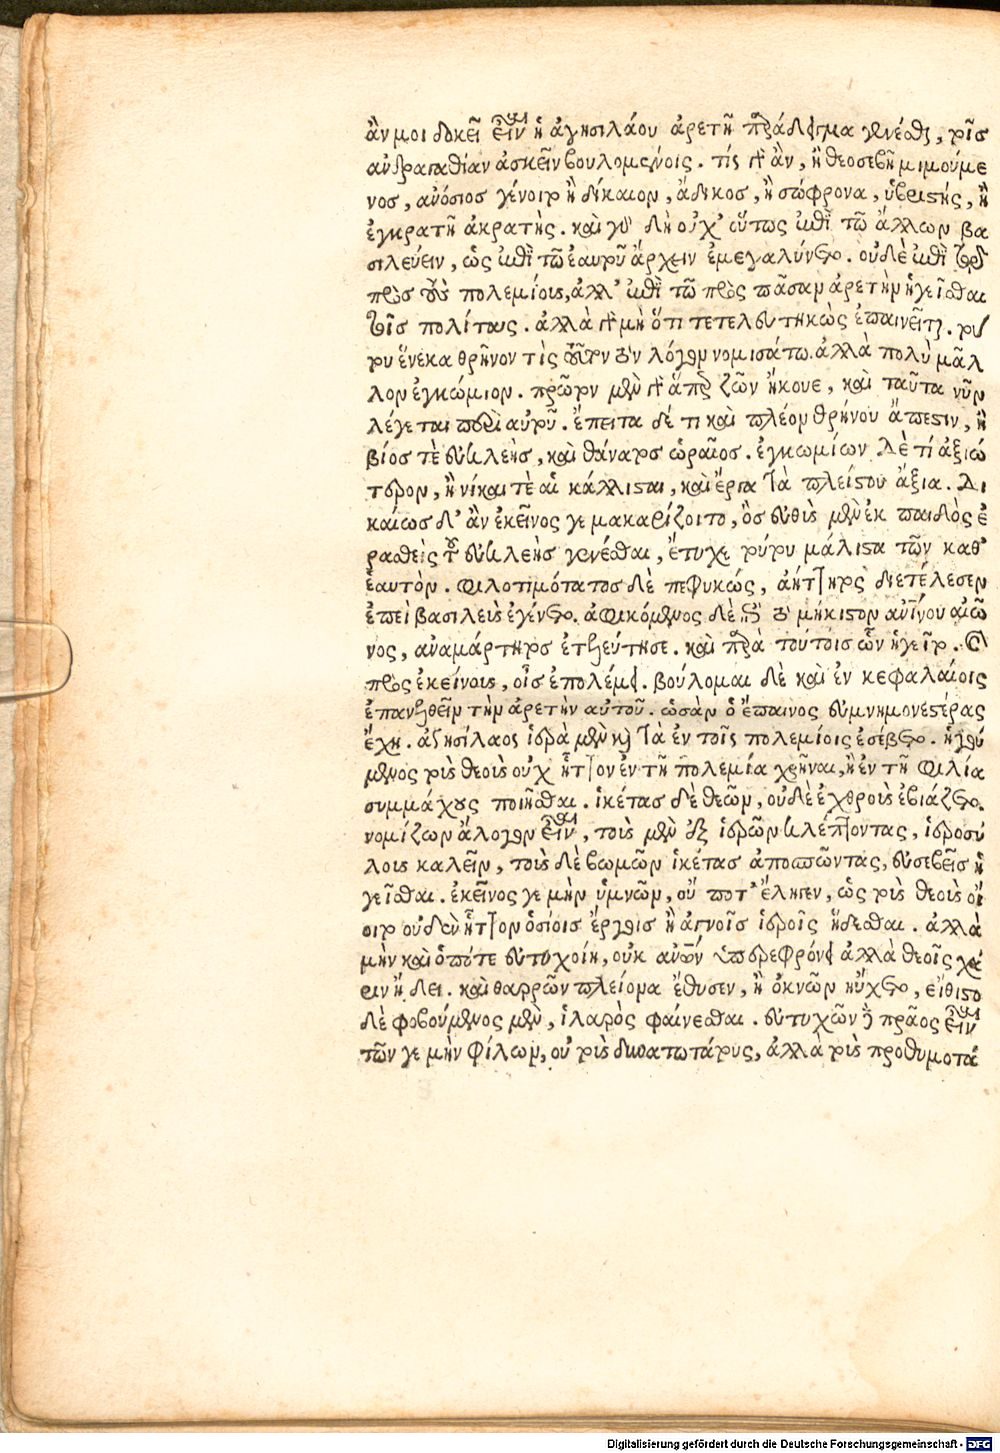 ἄν μοι δοκεῖ εἶναι ἡ ἀγησιλάου ἀρετὴ παράδειγμα γενέσθαι, τοῖς
ἀνδραγαθίαν ἀσκεῖν βουλομένοις. τίς γὰρ ἂν, ἢ θεοσεβῆ μιμούμε
νος, ἀνόσιος γένοιτο ἢ δίκαιον, ἄδικος, ἢ σώφρονα, ὑβριστής, ἢ
ἐγκρατῆ ἀκρατὴς. καὶ γὰρ δὴ οὐχ' οὕτως ἐπὶ τῷ ἄλλων βα
σιλεύειν, ὡς ἐπὶ τῷ ἑαυτοῦ ἄρχειν ἐμεγαλύνετο. οὐδὲ ἐπὶ
πρὸς τοὺς πολεμίους, ἀλλ' ἐπὶ τῷ πρὸς πᾶσαν ἀρετὴν ἡγεῖσθαι
τοῖς πολίταις. ἀλλὰ γὰρ μὴ ὅτι τετελευτηκὼς ἐπαινεῖται. τού
του ἕνεκα θρῆνον τὶς τοῦτον τὸν λόγον νομισάτω. ἀλλὰ πολὺ μᾶλ
λον ἐγκώμιον. πρῶτον μὲν γὰρ ἅπερ ζῶν ἤκουε, καὶ ταῦτα νῦν
λέγεται περὶ αὐτοῦ. ἔπειτα δέ τι καὶ πλέον θρήνου ἄπεστιν, ἢ
βίος τὲ εὐκλεὴς, καὶ θάνατος ὡραῖος. ἐγκωμίων δὲ τί ἀξιώ
τερον, ἢ νίκαι τὲ αἱ κάλλισται, καὶ ἔργα τὰ πλείστου ἄξια. δι
καίως δ' ἂν ἐκεῖνος γε μακαρίζοιτο, ὃς εὐθὺς μὲν ἐκ παιδὸς ἐ
ρασθεὶς τοῦ εὐκλεὴς γενέσθαι, ἔτυχε τούτου μάλιστα τῶν καθ'
ἑαυτὸν. φιλοτιμότατος δὲ πεφυκώς, ἀήττητος διετέλεσεν
ἐπεὶ βασιλεὺς ἐγένετο. ἀφικόμενος δὲ ἐπὶ τὸ μήκιστον ἀνθρωπίνου αἰῶ
νος, ἀναμάρτητος ἐτελεύτησε. καὶ παρὰ τούτοις ὧν ἡγεῖτο. καὶ
πρὸς ἐκείνους, οἷς ἐπολέμει. βούλομαι δὲ καὶ ἐν κεφαλαίοις
ἐπανελθεῖν τὴν ἀρετὴν αὐτοῦ. ὡς ἂν ὁ ἔπαινος εὐμνημονεστέρας
ἔχῃ. ἀγησίλαος ἱερὰ μὲν καὶ τὰ ἐν τοῖς πολεμίοις ἐσέβετο. ἡγού
μενος τοὺς θεοὺς οὐχ ἧττον ἐν τῇ πολεμία χρῆναι, ἢ ἐν τῇ φιλία
συμμάχους ποιεῖσθαι. ἱκέτας δὲ θεῶν, οὐδὲ ἐχθροὺς ἐβιάζετο.
νομίζων ἄλογον εἶναι, τοὺς μὲν ἐξ ἱερῶν κλέπτοντας, ἱεροσύ
λους καλεῖν, τοὺς δὲ βωμῶν ἱκέτας ἀποσπῶντας, εὐσεβεῖς ἡ
γεῖσθαι. ἐκεῖνος γε μὴν ὑμνῶν, οὔ ποτ' ἔληγεν, ὡς τοὺς θεοὺς οἴ
οιτο οὐδὲν ἧττον ὁσίοις ἔργοις ἢ ἁγνοῖς ἱεροῖς ἥδεσθαι. ἀλλὰ
μὴν καὶ ὁπότε εὐτυχοίη, οὐκ ἀνθρώπων ὑπερεφρόνει ἀλλὰ θεοῖς χά
ριν ᾔδει. καὶ θαρρῶν πλείονα ἔθυσεν, ἢ ὀκνῶν ηὔχετο, εἴθιστο
δὲ φοβούμενος μὲν, ἱλαρὸς φαίνεσθαι. εὐτυχῶν δὲ πρᾶος εἶναι
τῶν γε μὴν φίλων, οὐ τοὺς δυνατωτάτους, ἀλλὰ τοὺς προθυμοτά
Digitalisierung gefördert durch die Deutsche Forschungsgemeinschaft - DFG